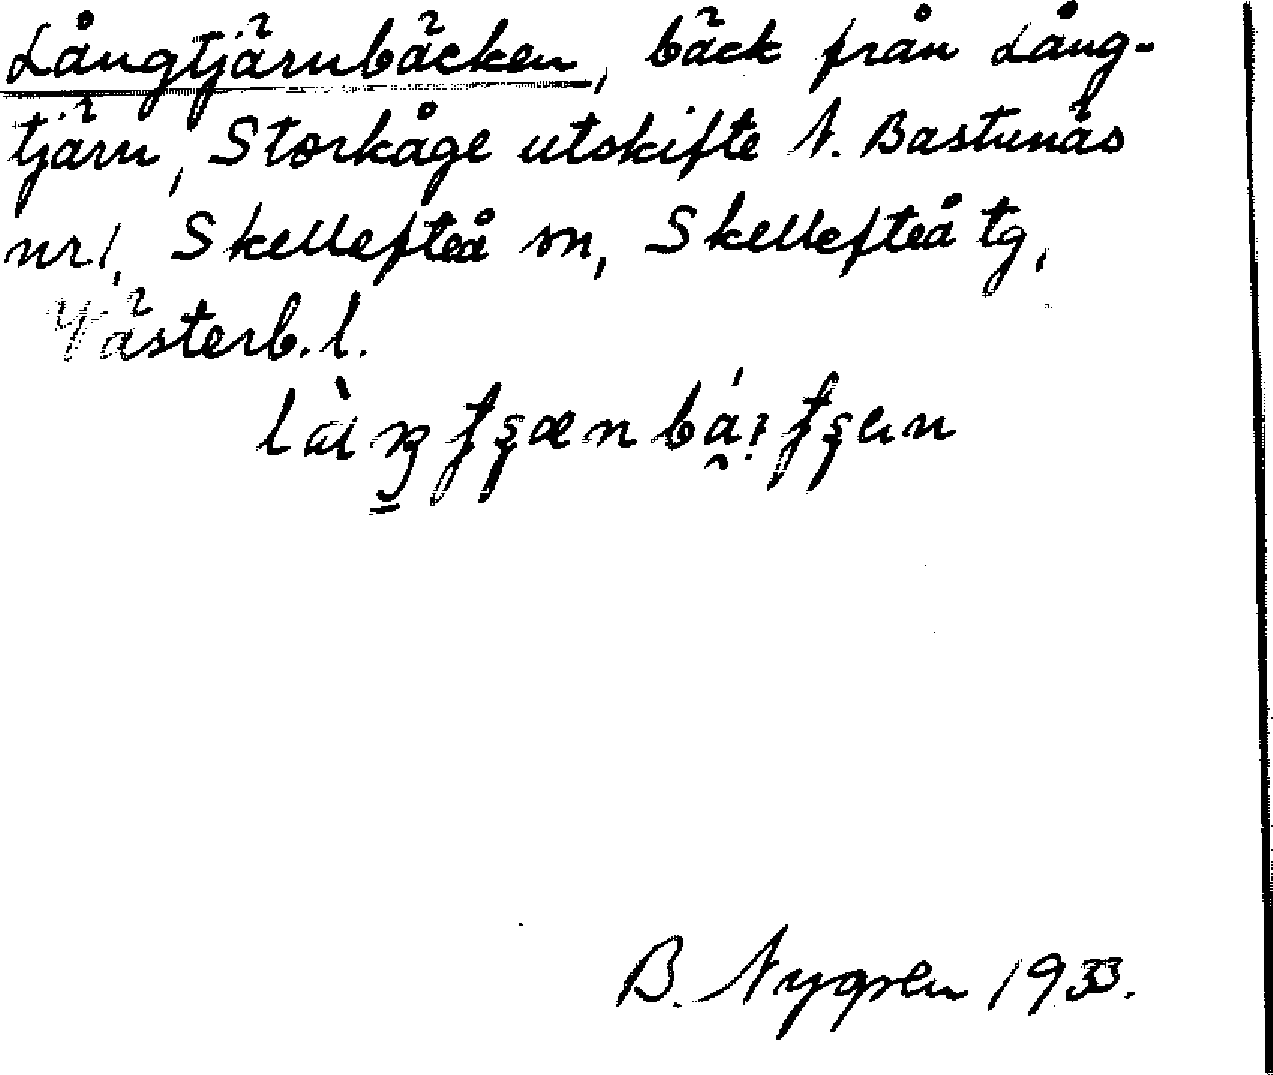 Långtjärnbäcken, bäck från Lång-
tjärn, Storkåge utskifte N. Bastunäs
nr 1, Skellefteå sn, Skellefteå tg,
Västerb. l.
B. Nygren 1933.